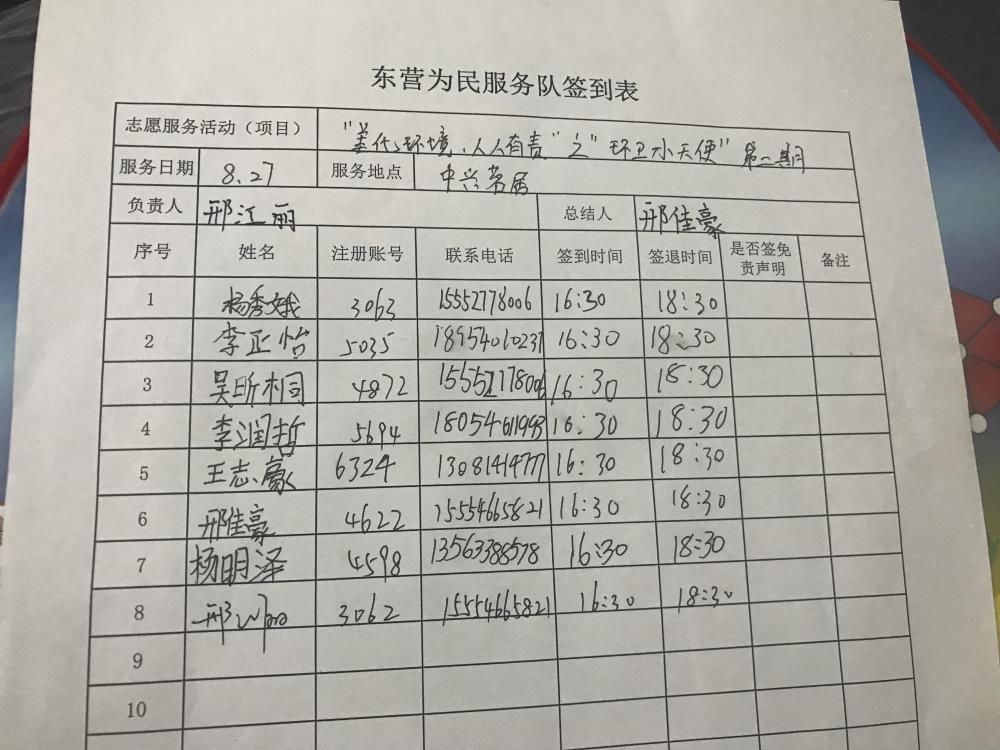 东营为民服务队签到表
志愿服务活动（项目） "美化环境、人人有责"之"环卫小天使"第一期
服务日期 8.27 服务地点 中兴茗居
负责人 邢江丽 总结人 邢佳豪
序号 姓名 注册账号 联系电话 签到时间 签退时间 是否签免责声明 备注
1 杨秀娥 3063 15552778006 16:30 18:30
2 李正怡 5035 18954010237 16:30 18:30
3 吴昕桐 4872 15552778006 16:30 18:30
4 李润哲 5694 18054611993 16:30 18:30
5 王志豪 6324 13081414777 16:30 18:30
6 邢佳豪 4622 15554665821 16:30 18:30
7 杨明泽 4598 13563388578 16:30 18:30
8 邢江丽 3062 15554665821 16:30 18:30
9
10